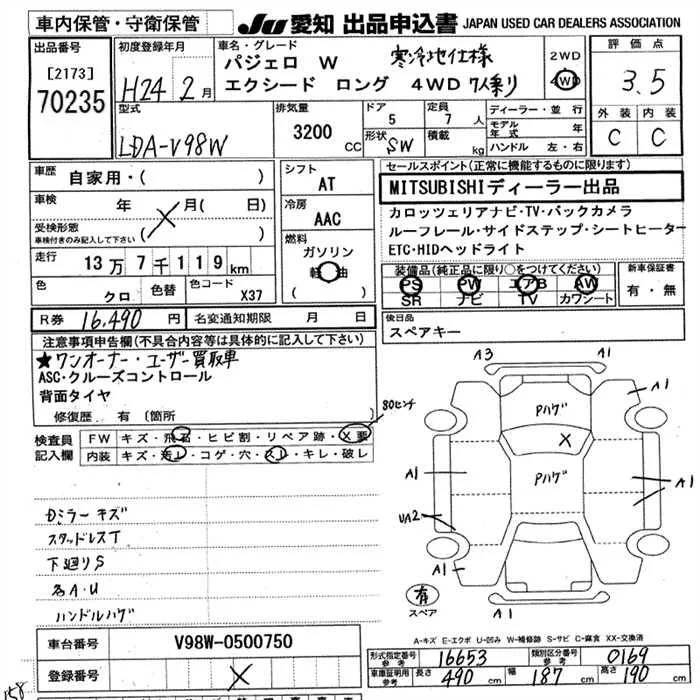 車内保管・守衛保管
JU 愛知 出品申込書 JAPAN USED CAR DEALERS ASSOCIATION
出品番号
[2173]
70235
初度登録年月
H24 2月
車名・グレード
パジェロ W 寒冷地仕様
エクシード ロング 4WD 7人乗り
2WD
4WD
評価点
3.5
外装 内装
C C
型式
LDA-V98W
排気量
3200 CC
ドア
5
定員
7 人
形状
SW
積載
kg
ディーラー・並行
モデル年式 年
ハンドル 左・右
車歴 自家用・( )
車検 年 月(日)
受検形態
車検付きのみ記入して下さい
走行 13万7千119km
色 クロ
色替
色コード X37
シフト
AT
冷房
AAC
燃料
ガソリン
軽油
( )
セールスポイント(正常に機能するものに限ります)
MITSUBISHIディーラー出品
カロッツェリアナビ・TV・バックカメラ
ルーフレール・サイドステップ・シートヒーター
ETC・HIDヘッドライト
装備品(純正品に限り○をつけてください)
PS PW エアB AW
SR ナビ TV カワシート
新車保証書
有・無
R券 16,490 円
名変通知期限 月 日
後日品
スペアキー
注意事項申告欄(不具合内容等は具体的に記入して下さい)
★ワンオーナー・ユーザー買取車
ASC・クルーズコントロール
背面タイヤ
修復歴 有 〔箇所
80センチ
検査員記入欄
FW キズ・飛石・ヒビ割・リペア跡・X要
内装 キズ・汚レ・コゲ・穴・スレ・キレ・破レ
Dミラーキズ
スタッドレスT
下廻りS
各A・U
ハンドルハゲ
A3 A1
A1
Pハゲ
X
Pハゲ
A1 A1
UA2
A1 A1
A1
有
スペア
A-キズ E-エクボ U-凹み W-補修跡 S-サビ C-腐食 XX-交換済
車台番号 V98W-0500750
登録番号 X
形式指定番号 参考 16653
類別区分番号 参考 0169
車庫証明用 参考 長さ 490 cm 幅 187 cm 高さ 190 cm
158